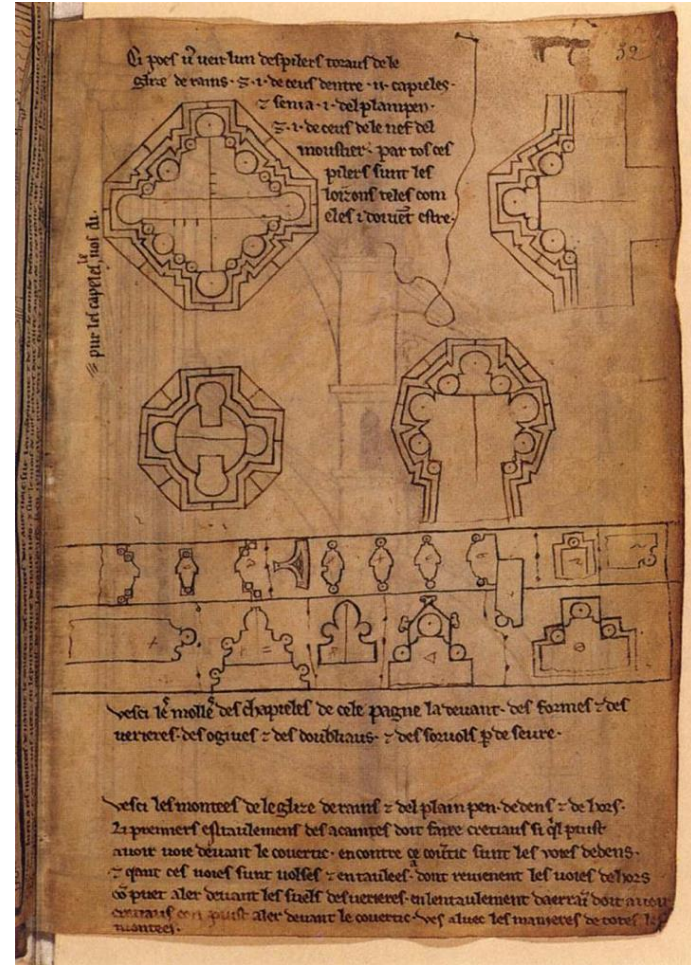 32
Ci poes u͛ veir lun des pilers toraus de le
glize de rains · ⁊ · i · de ceus dentre · ii · capieles ·
⁊ sen i a · i · del plain pen ·
⁊ · i · de ceus de le nef del
moustier · par tos ces
pilers sunt les
loizons teles com
eles i doivēt estre ·
pur les
vesci le molle des chapieles de cele pagne la devant · des formes ⁊ des
verieres · des ogives ⁊ des doubliaus · ⁊ des sorvols p̱ de seure ·
vesci les montees de le glize de rains ⁊ del plain pen · dedens ⁊ de hors ·
Li premiers estaulemens des acaintes doit faire cretiaus si qͥl puist
avoir voie devant le covertic · encontre ce sunt les voies dedens ·
⁊ qͣnt ces voies sunt volses ⁊ entaulees · dont revienent les voies dehors
cō puet aler devant les suels des verieres · en lentaulement daerraī doit avoir
cretiaus con puist aler devant le covertic · ves aluec les manieres de totes les
montees ·